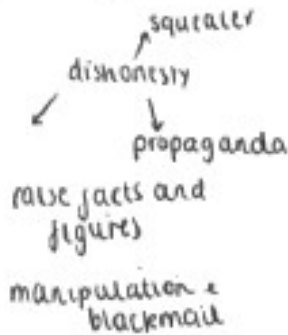 squealer
dishonesty
propaganda
false facts and
figures
manipulation &
blackmail